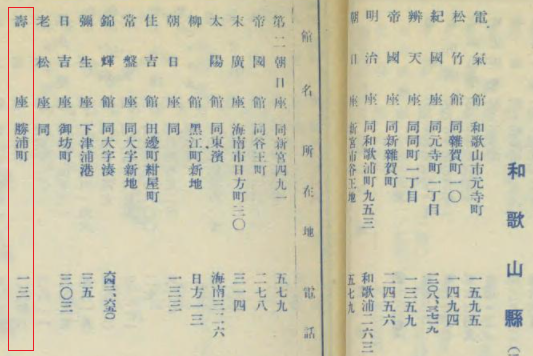 和歌山縣
電氣館 和歌山市元寺町 一五九五
松竹館 同雜賀町一〇 一四九四
紀國座 同元寺町一丁目
辨天座 同元町一丁目 一三五九
帝國座 同新雜賀町 二四五六
明治座 同和歌浦町九五三 和歌浦二六三
朝日座 新宮市谷王地 五七九
館名 所在地 電話
第二朝日座 同新宮四九一 五七九
帝國館 同谷王町 二七八
末廣座 海南市日方町三〇 三一四
太陽館 同東濱 海南三二六
柳館 黑江町新地 日方一三
朝日座 同 一三三
住吉館 田邊町紺屋町
常盤座 同大字新地
錦輝館 同大字湊
彌生座 下津浦港 三五
日吉座 御坊町 三〇三
老松座 同
壽座 勝浦町 一三